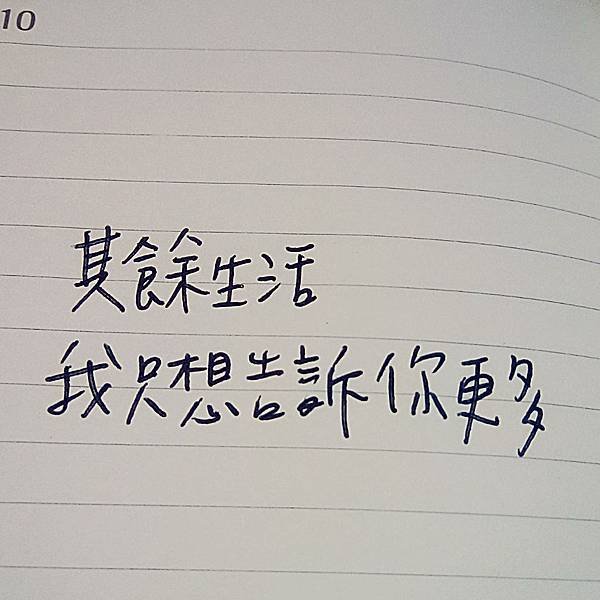 10
其餘生活
我只想告訴你更多